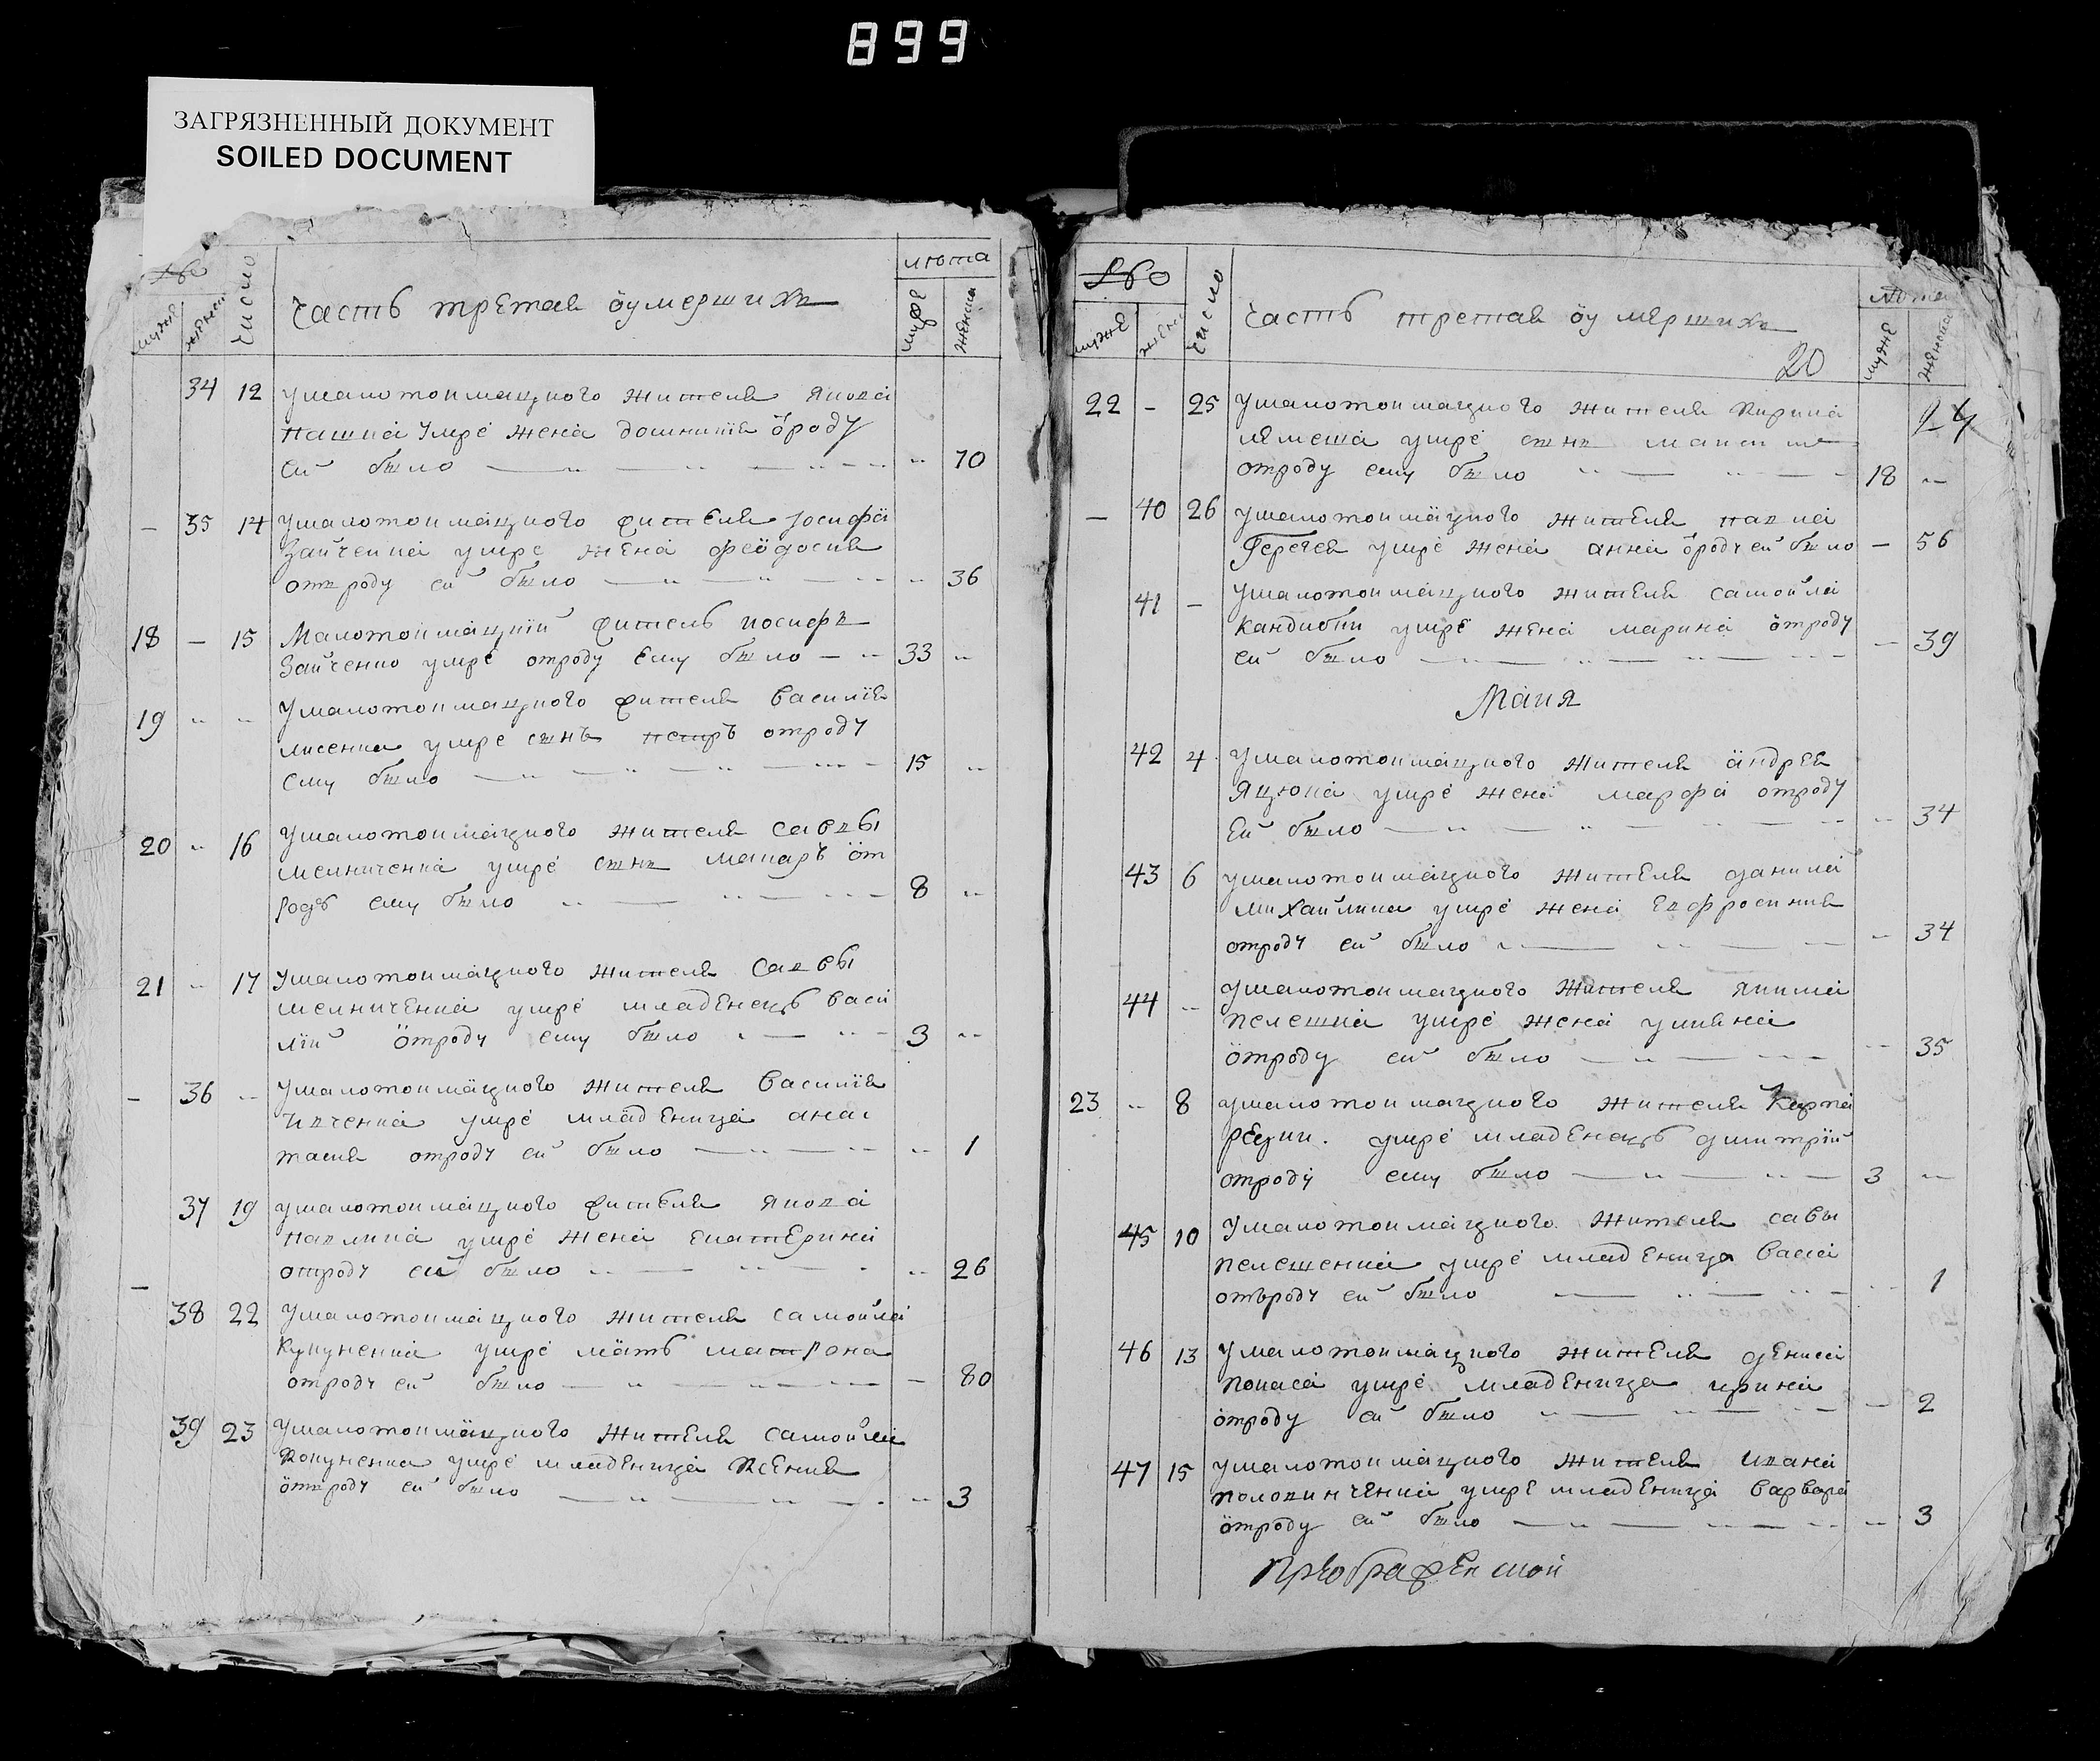 899
ЗАГРЯЗНЕННЫЙ ДОКУМЕНТ
SOILED DOCUMENT
№ Число Часть третая оумершихъ люта
муже женска муже женска
34 12 Умалотокмацкого жителя Якова
Пашка умре жена
ей было 70
35 14 Умалотокмацкого жителя Іосифа
Зайченка умре жена феодосия
отъроду ей было 36
18 15 Малотокмацкий житель иосифъ
Зайченко умре отроду ему было 33
19 Умалотокмацкого жителя Василія
лисенка умре сынъ петръ отроду
ему было 15
20 16 Умалотокмацкого жителя Саввы
мелниченка умре сынъ макаръ от
родъ ему было 8
21 17 Умалотокмацкого жителя Саввы
мелниченка умре младенецъ васи
лій отроду ему было 3
36 Умалотокмацкого жителя Василія
умре младеница анас
тасия отроду ей было 1
37 19 Умалотокмацкого жителя Якова
павлика умре жена екатерина
отроду ей было 26
38 22 Умалотокмацкого жителя самойла
Кукуненка умре мать матрона
отроду ей было 80
39 23 Умалотокмацкого жителя самойла
Кокуненка умре младеница Ксения
отъроду ей было 3
№ Число Часть третая оумершихъ люта
муже жен муже женска
20
24
22 25 Умалотокмацкого жителя Кирила
умре сынъ
отроду ему было 18
40 26 Умалотокмацкого жителя павла
умре жена анна ороду ей было 56
41 Умалотокмацкого жителя самойла
Кандибы умре жена марина отроду
ей было 39
Маия
42 4 Умалотокмацкого жителя андрея
Яцюка умре жена марфа отроду
ей было 34
43 6 Умалотокмацкого жителя данила
михайлика умре жена Евфросиния
отроду ей было 34
44 Умалотокмацкого жителя Якима
пелешка умре жена улияна
отроду ей было 35
23 8 Умалотокмацкого жителя Карпа
умре младенецъ дмитрій
отроду ему было 3
45 10 Умалотокмацкого жителя савы
пелешенка умре младеница васса
отъроду ей было 1
46 13 Умалотокмацкого жителя дениса
умре младеница ирина
отроду ей было 2
47 15 Умалотокмацкого жителя ивана
половинченка умре младеница варвара
отроду ей было 3
преображенской